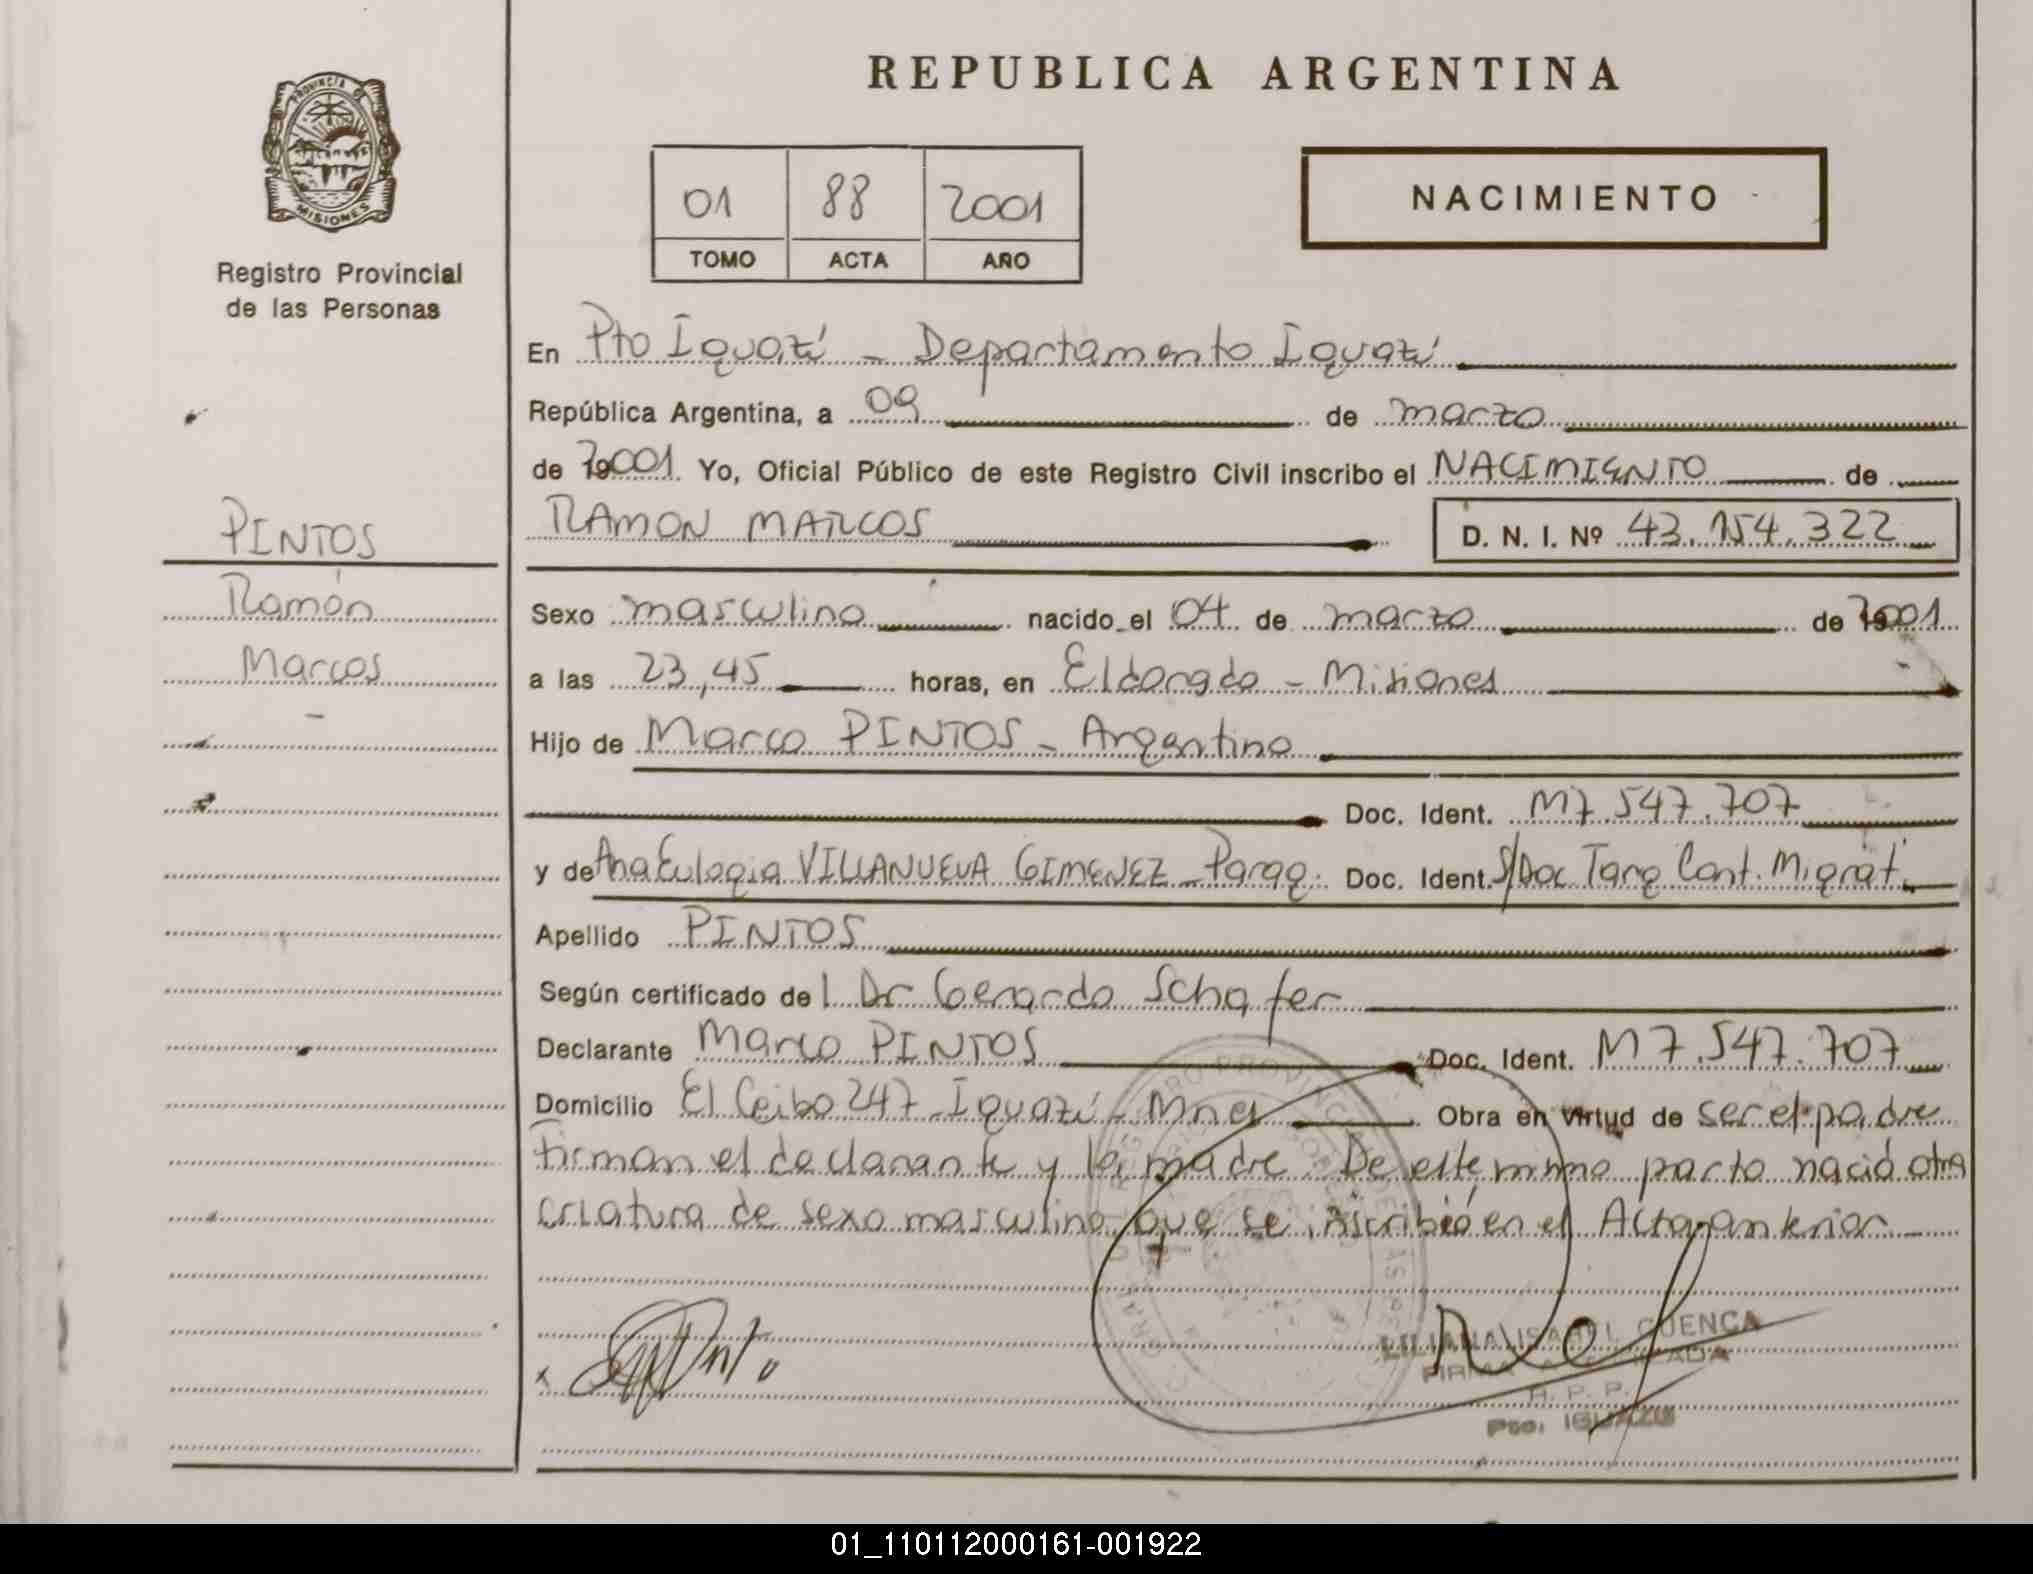 REPUBLICA ARGENTINA
PROVINCIA DE
MISIONES
Registro Provincial
de las Personas
01 88 2001
TOMO ACTA AÑO
NACIMIENTO
En Pto Iguazú - Departamento Iguazú
República Argentina, a 09 de marzo
de 2001. Yo, Oficial Público de este Registro Civil inscribo el NACIMIENTO de
RAMON MARCOS
D. N. I. Nº 43.154.322
PINTOS
Ramón
Marcos
Sexo masculino nacido el 04 de marzo de 2001
a las 23,45 horas, en Eldorado - Misiones
Hijo de Marco PINTOS - Argentino
Doc. Ident. M7.547.707
y de Ana Eulogia VILLANUEVA GIMENEZ - Parag. Doc. Ident. S/Doc Tarq Cont. Migrat.
Apellido PINTOS
Según certificado del Dr Gerardo Schafer
Declarante Marco PINTOS Doc. Ident. M7.547.707
Domicilio El Ceibo 247 - Iguazú - Mnes Obra en virtud de ser el padre
Firman el declarante y la madre. De este mismo parto nació otra
criatura de sexo masculino que se inscribió en el Acta anterior
LILIANA ISABEL CUENCA
FIRMA
R. P. P.
Pto. IGUAZU
01_110112000161-001922